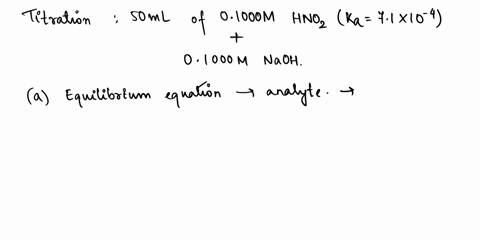 Titration : 50mL of 0.1000M HNO₂ (Ka = 7.1 × 10⁻⁴)
+
0.1000M NaOH.
(a) Equilibrium equation → analyte. →